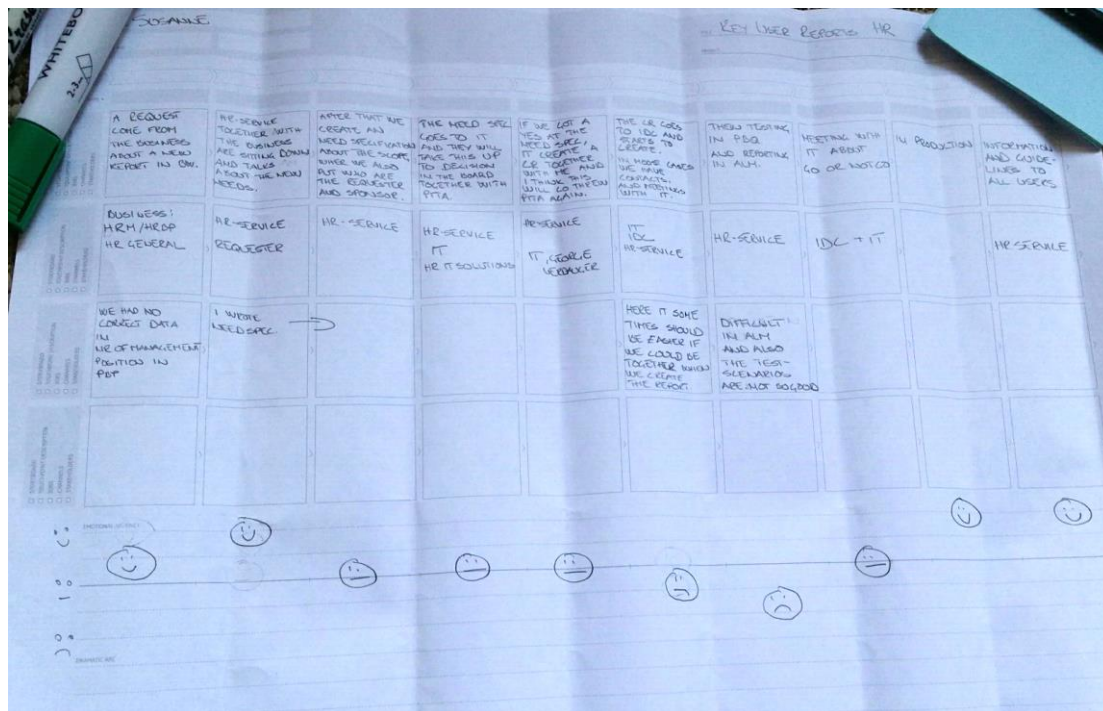 WHITEBO
2-3
SUSANNE
KEY USER REPORTS HR
A REQUEST
COME FROM
THE BUSINESS
ABOUT A NEW
REPORT IN BW.
HR-SERVICE
TOGETHER WITH
THE BUSINESS
ARE SITTING DOWN
AND TALKS
ABOUT THE NEW
NEEDS.
AFTER THAT WE
CREATE AN
NEED SPECIFICATION
ABOUT THE SCOPE,
WHERE WE ALSO
PUT WHO ARE
THE REQUESTER
AND SPONSOR.
THE NEED SPEC
GOES TO IT
AND THEY WILL
TAKE THIS UP
TO DECISION
IN THE BOARD
TOGETHER WITH
PTTA
IF WE GOT A
YES AT THE
NEED SPEC,
IT CREATE A
CR TOGETHER
WITH ME AND
I THINK THIS
WILL GO THREW
PTTA AGAIN.
THE CR GOES
TO IDC AND
STARTS TO
CREATE.
IN MOST CASES
WE HAVE
CONTACTS.
AND MEETINGS
WITH IT.
THEN TESTING
IN PBQ
AND REPORTING
IN ALM.
MEETING WITH
IT ABOUT
GO OR NOT GO
IN PRODUCTION
INFORMATION
AND GUIDE-
LINES TO
ALL USERS
BUSINESS:
HRM/HRBP
HR GENERAL
HR-SERVICE
REQUESTER
HR-SERVICE
HR-SERVICE
IT
HR IT SOLUTIONS
HR-SERVICE
IT, GEORGIE
IT
IDC
HR-SERVICE
HR-SERVICE
IDC + IT
HR SERVICE
WE HAD NO
CORRECT DATA
IN
NR OF MANAGEMENT
POSITION IN
PBP
I WROTE
NEED SPEC.
HERE IT SOME
TIMES SHOULD
BE EASIER IF
WE COULD BE
TOGETHER WHEN
WE CREATE
THE REPORT
DIFFICULT
IN ALM
AND ALSO
THE TEST-
SCENARIOS
ARE NOT SO GOOD
EMOTIONAL JOURNEY
DRAMATIC ARC